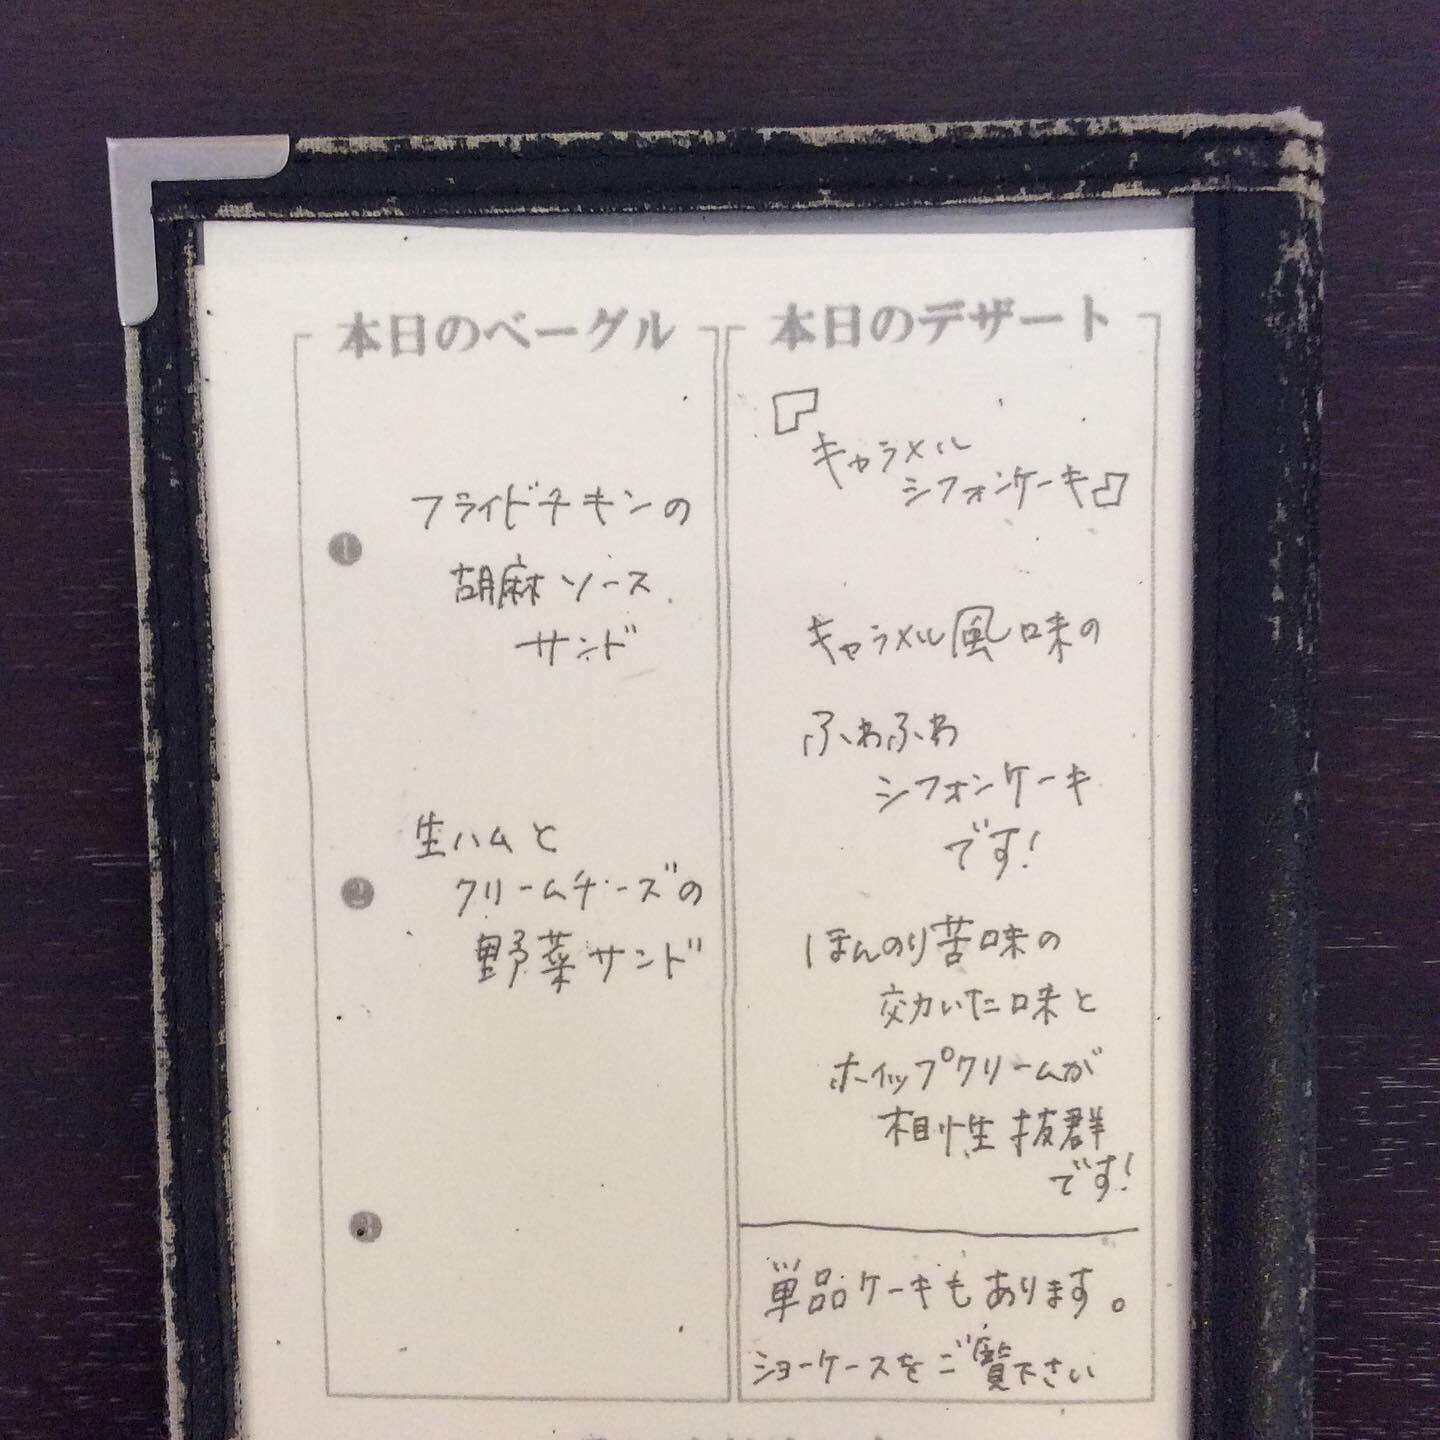 本日のベーグル
1
フライドチキンの
胡麻ソース
サンド
2
生ハムと
クリームチーズの
野菜サンド
3
本日のデザート
『キャラメル
シフォンケーキ』
キャラメル風味の
ふわふわ
シフォンケーキ
です!
ほんのり苦味の
効いた味と
ホイップクリームが
相性抜群
です!
単品ケーキもあります。
ショーケースをご覧下さい